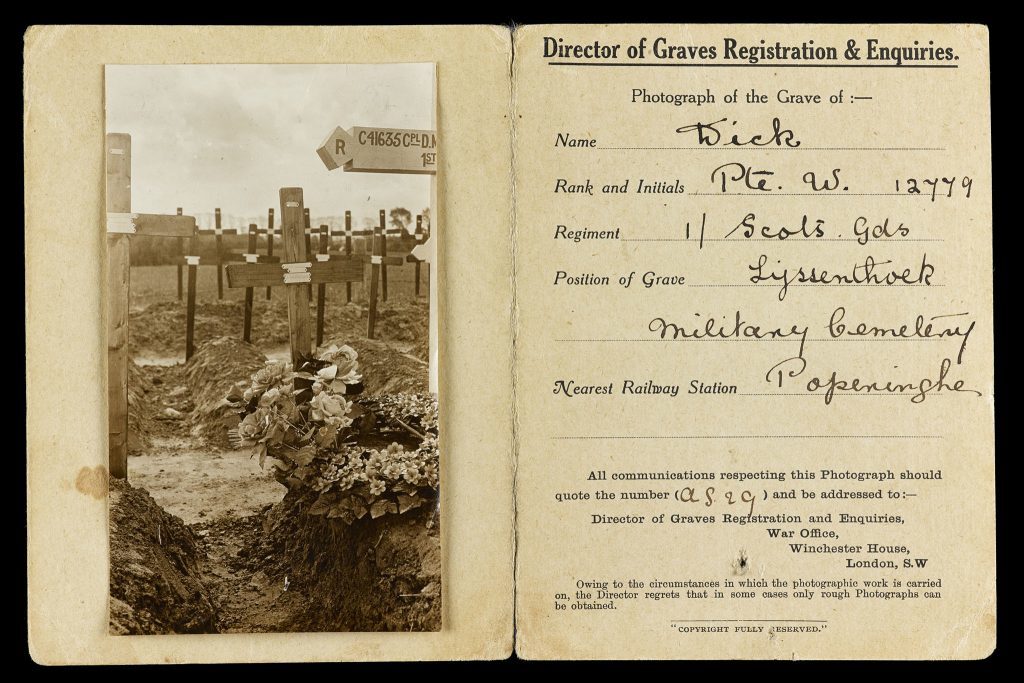 R
C41635 CPL D.M
1ST
Director of Graves Registration & Enquiries.
Photograph of the Grave of :—
Name Dick
Rank and Initials Pte. W. 12779
Regiment 1/ Scots. Gds
Position of Grave Lijssenthoek
Military Cemetery
Nearest Railway Station Poperinghe
All communications respecting this Photograph should
quote the number (AS29) and be addressed to:—
Director of Graves Registration and Enquiries,
War Office,
Winchester House,
London, S.W
Owing to the circumstances in which the photographic work is carried
on, the Director regrets that in some cases only rough Photographs can
be obtained.
"COPYRIGHT FULLY RESERVED."